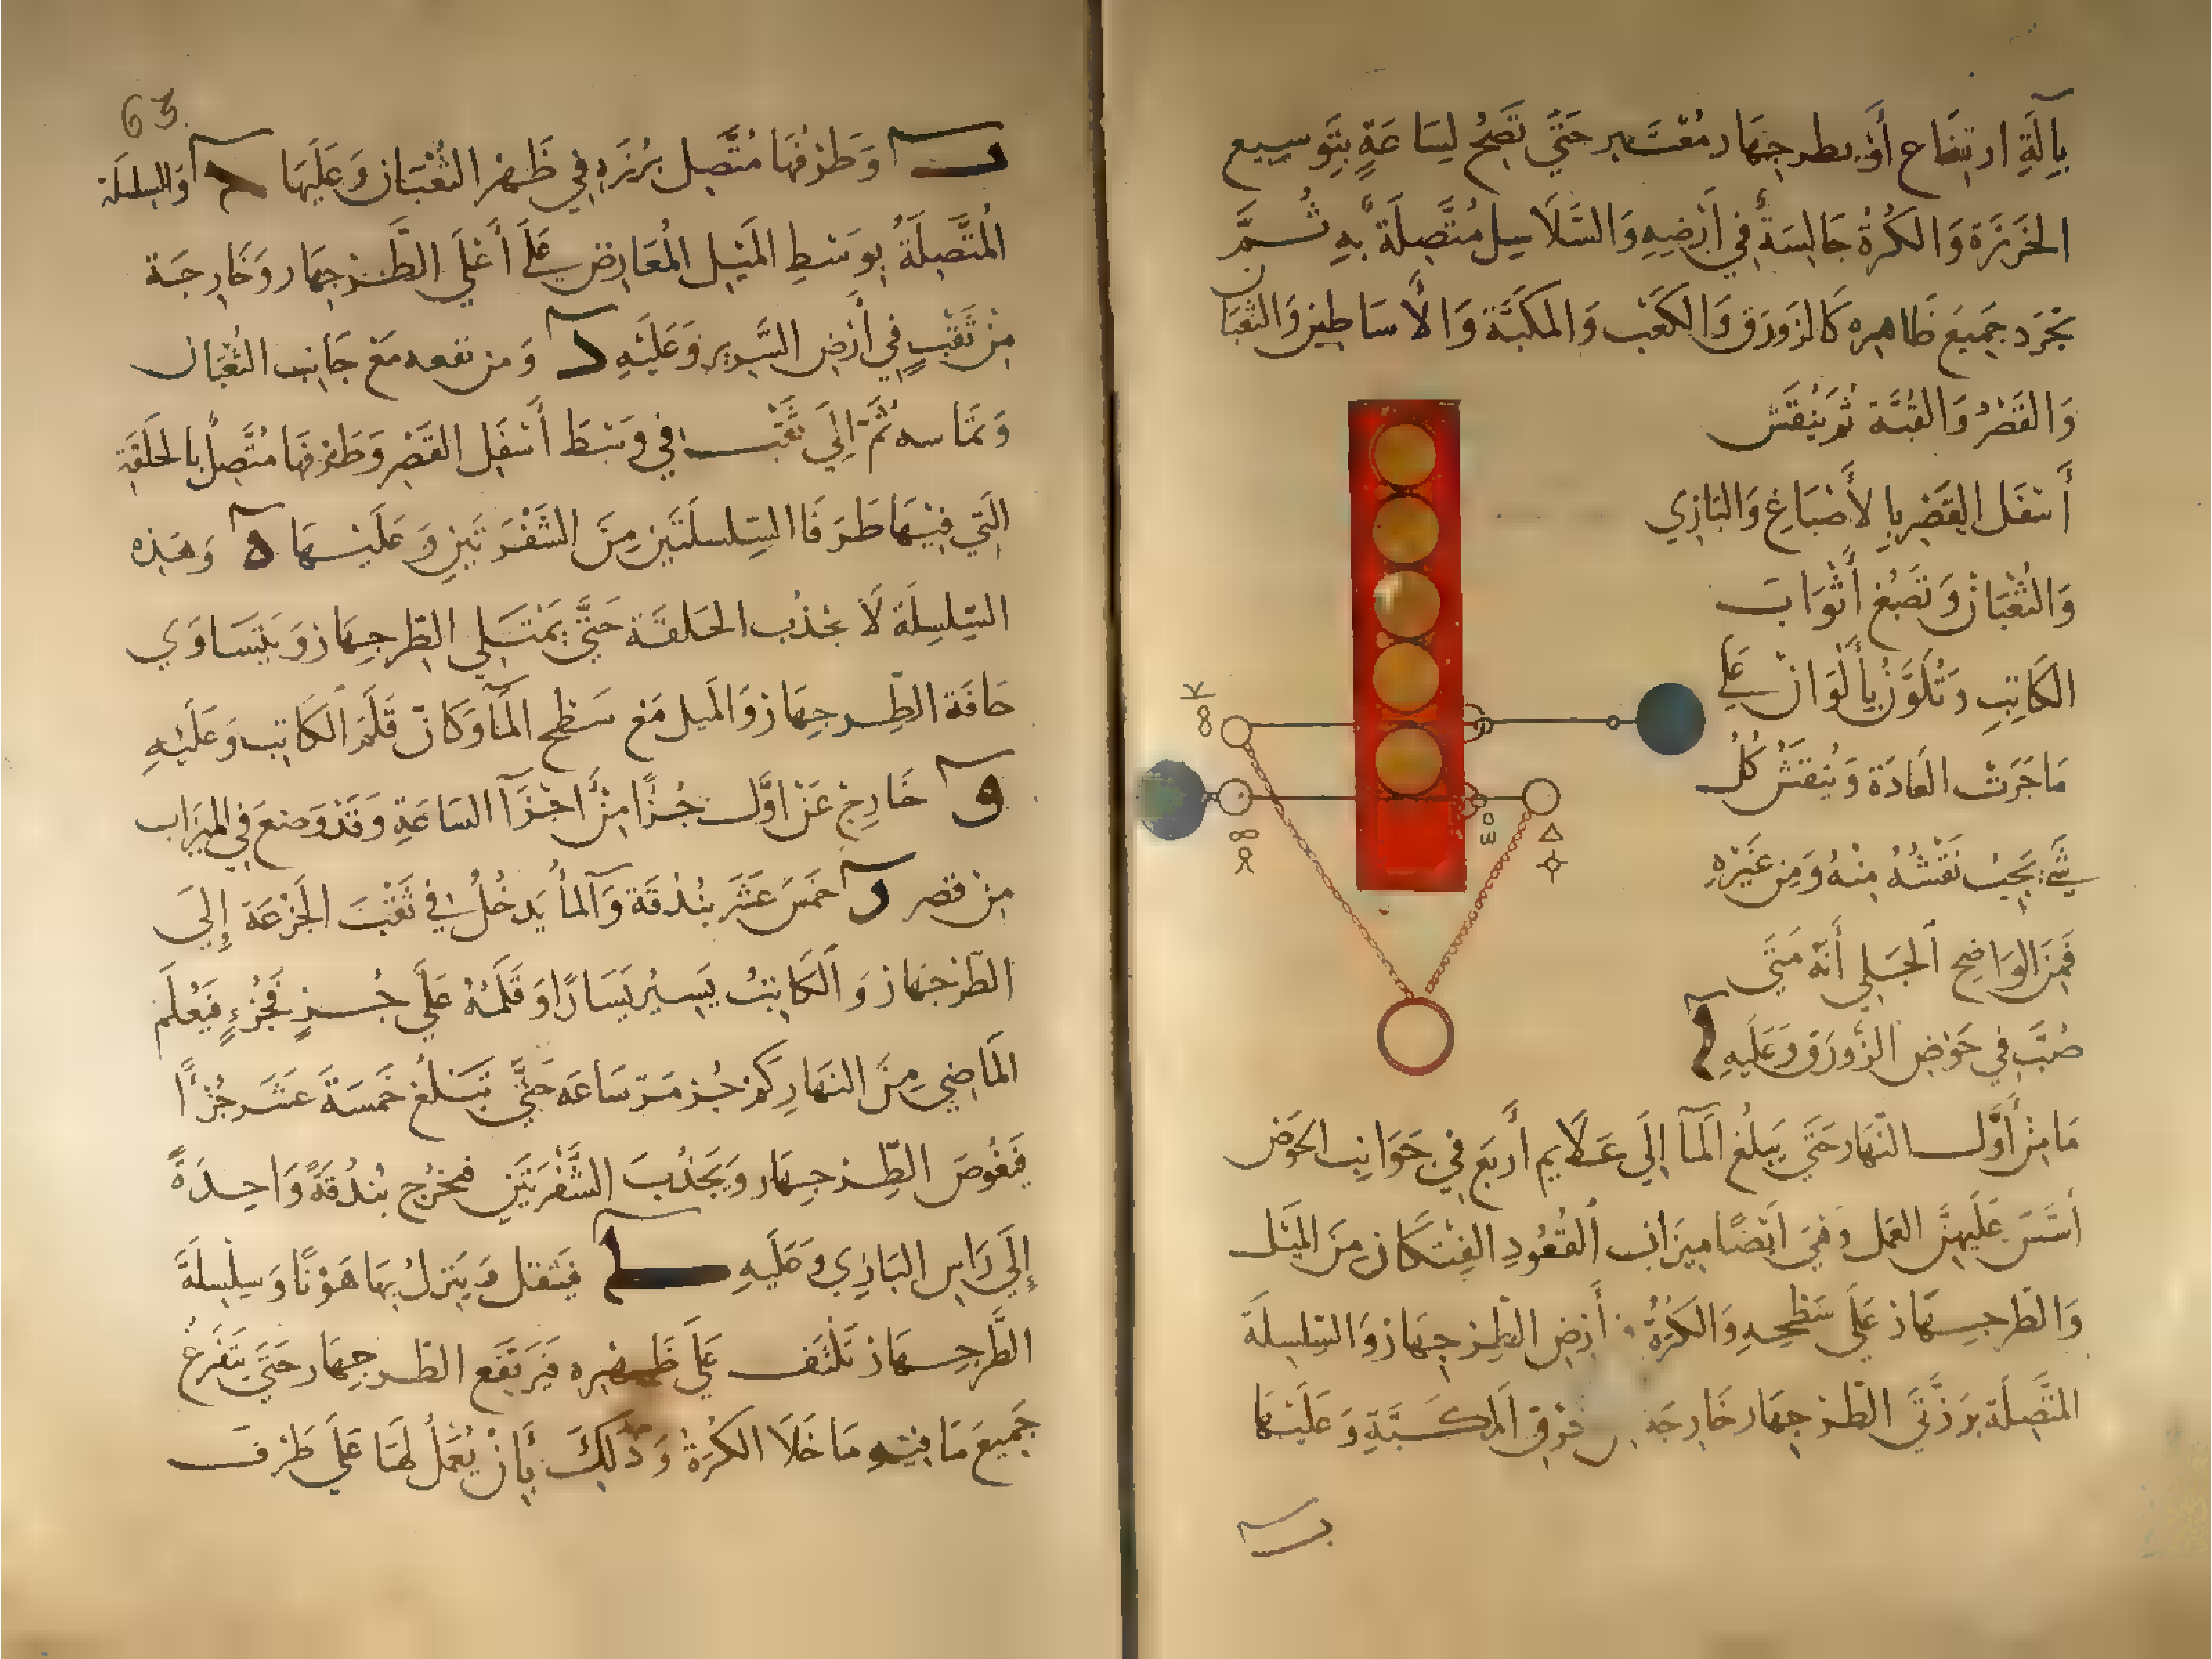 بِآلَةِ ارتِفَاع أَوْ بطرجهَار مُعْتَبر حَتَّى تَصِحُّ لِسَاعَةٍ بِتَوسِيع
الخَرَزَة وَالكُرةُ جَالِسَةٌ في أَرْضِهِ وَالسَّلَاسِل مُتَّصِلَةٌ بِهِ ثُـمَّ
يُجْرَد جَميعَ ظَاهِره كَالزورَق وَالكَعْب وَالمكَبَّة وَالأَسَاطِين وَالثعبَان
وَالقَصْرُ وَالقبَّة ثم يُنقَش
أَسْفَل القَصْر بِالأَصْبَاغِ وَالبَازِي
وَالثُّعْبَان وَتَصْبُغ أَثْوَابَ
الكَاتِبِ وتُلَوَّن بِأَلْوَان عَلَى
مَا جَرَت العَادَة وَيُنقَشُ كُلُّ
شَيْءٍ يَجِبُ نَقْشُهُ مِنْهُ وَمِن غَيْرِهِ
فَمِنَ الوَاضِحِ الجَلِي أَنَّهُ مَتَى
صُبَّ في حَوْض الزَّورَق وَعَلَيهِ آ
مَا مِنْ أَوَّل النَّهَار حَتَّى يَبلُغ المَآ إِلَى عَلَايم أَربَع في جَوَانِب الحَوْض
أَسَّسَ عَلَيهِنَّ العَمَل وَهِيَ أَيْضًا مِيزَان القُعُودِ الفِنكَان مِنَ المَيْل
وَالطرجهَار عَلَى سَطْحِهِ وَالكُرَةُ أَرض الطرجهَار وَالسِّلسِلَة
المتَّصِلَة برَزَّتَي الطرجهَار خَارجَة فَوق المكَبَّةِ وَعَلَيْهَا
ب
63
ب وَطَرْفهَا مُتَّصِل برُزَةٍ في ظَهْر الثعْبَان وَعَلَيهَا ج وَالسِلسلَة
المُتَّصِلَةُ بِوَسَطِ المَيْل المُعَارِض عَلَى أَعْلَى الطرجهَار وَخَارِجَة
مِنْ ثَقْبٍ في أَرْضِ السَّرِير وَعَلَيْهِ د وَمن نقعه مَعْ جَانِب الثعْبَان
وَتمَاسه ثُمَّ إِلَى ثَقْب في وَسَط أَسْفَل القَصْر وَطَرفهَا مُتَّصِلٌ بِالحَلَقَة
التي فِيْهَا طَرَفَا السِّلسلَتَين مِنَ الشَّفْرَتَينِ وَعَلَيْهَا ه وَهَذِه
السِّلسِلَة لَا تجْذُب الحَلقَة حَتَّى يَمْتَلِي الطرجهَار وَيَتَسَاوَي
حَافَة الطرجهَار وَالمَيل مَعْ سَطْح المَآ وَكَانَ قَلَمُ الكَاتِب وَعَلَيْهِ
و خَارِجْ عَنْ اوَّل جُزًا مِنْ اجْزَآ السَّاعَةِ وَقَدْ وَضعَ في الميزَاب
مِنْ قصر ز خَمسَ عَشَرَ بُنْدُقَة وَالمآ يَدْخُلُ في ثَقْبَ الجَزْعَة إِلَى
الطرجهَار وَالكَاتِبُ يَسِيْر يَسَارًا وَقَلَمُهُ عَلَى جُـزءٍ فَجُزْءٍ فَيُعْلَم
المَاضِي مِنَ النَّهَارِ كم جُزء مَرّ سَاعَه حَتَّى تَبْلُغ خَمسَةَ عَشَر جُزْأً
فَيَغُوصَ الطرجهَار وَيَجْذُبَ الشَّفْرَتَيْنِ فَيخْرُج بُنْدُقَةً وَاحِدَةً
إِلَى رَاس البَازِي وَعَلَيهِ ح فَيثقل وَيَنزلُ بِهَا هَوْنًا وَسِلْسِلَةَ
الطَّرجهَار تَلْتَف عَلَى ظَهْرِه فيرَتفِع الطرجهَار حَتَّى يَتفَرغُ
جَمِيعَ مَا فِيْهِ مَا خَلَا الكُرَةُ وَذَلِكَ بِأَنْ يُعْمَلُ لَهَا عَلَى طَرَف